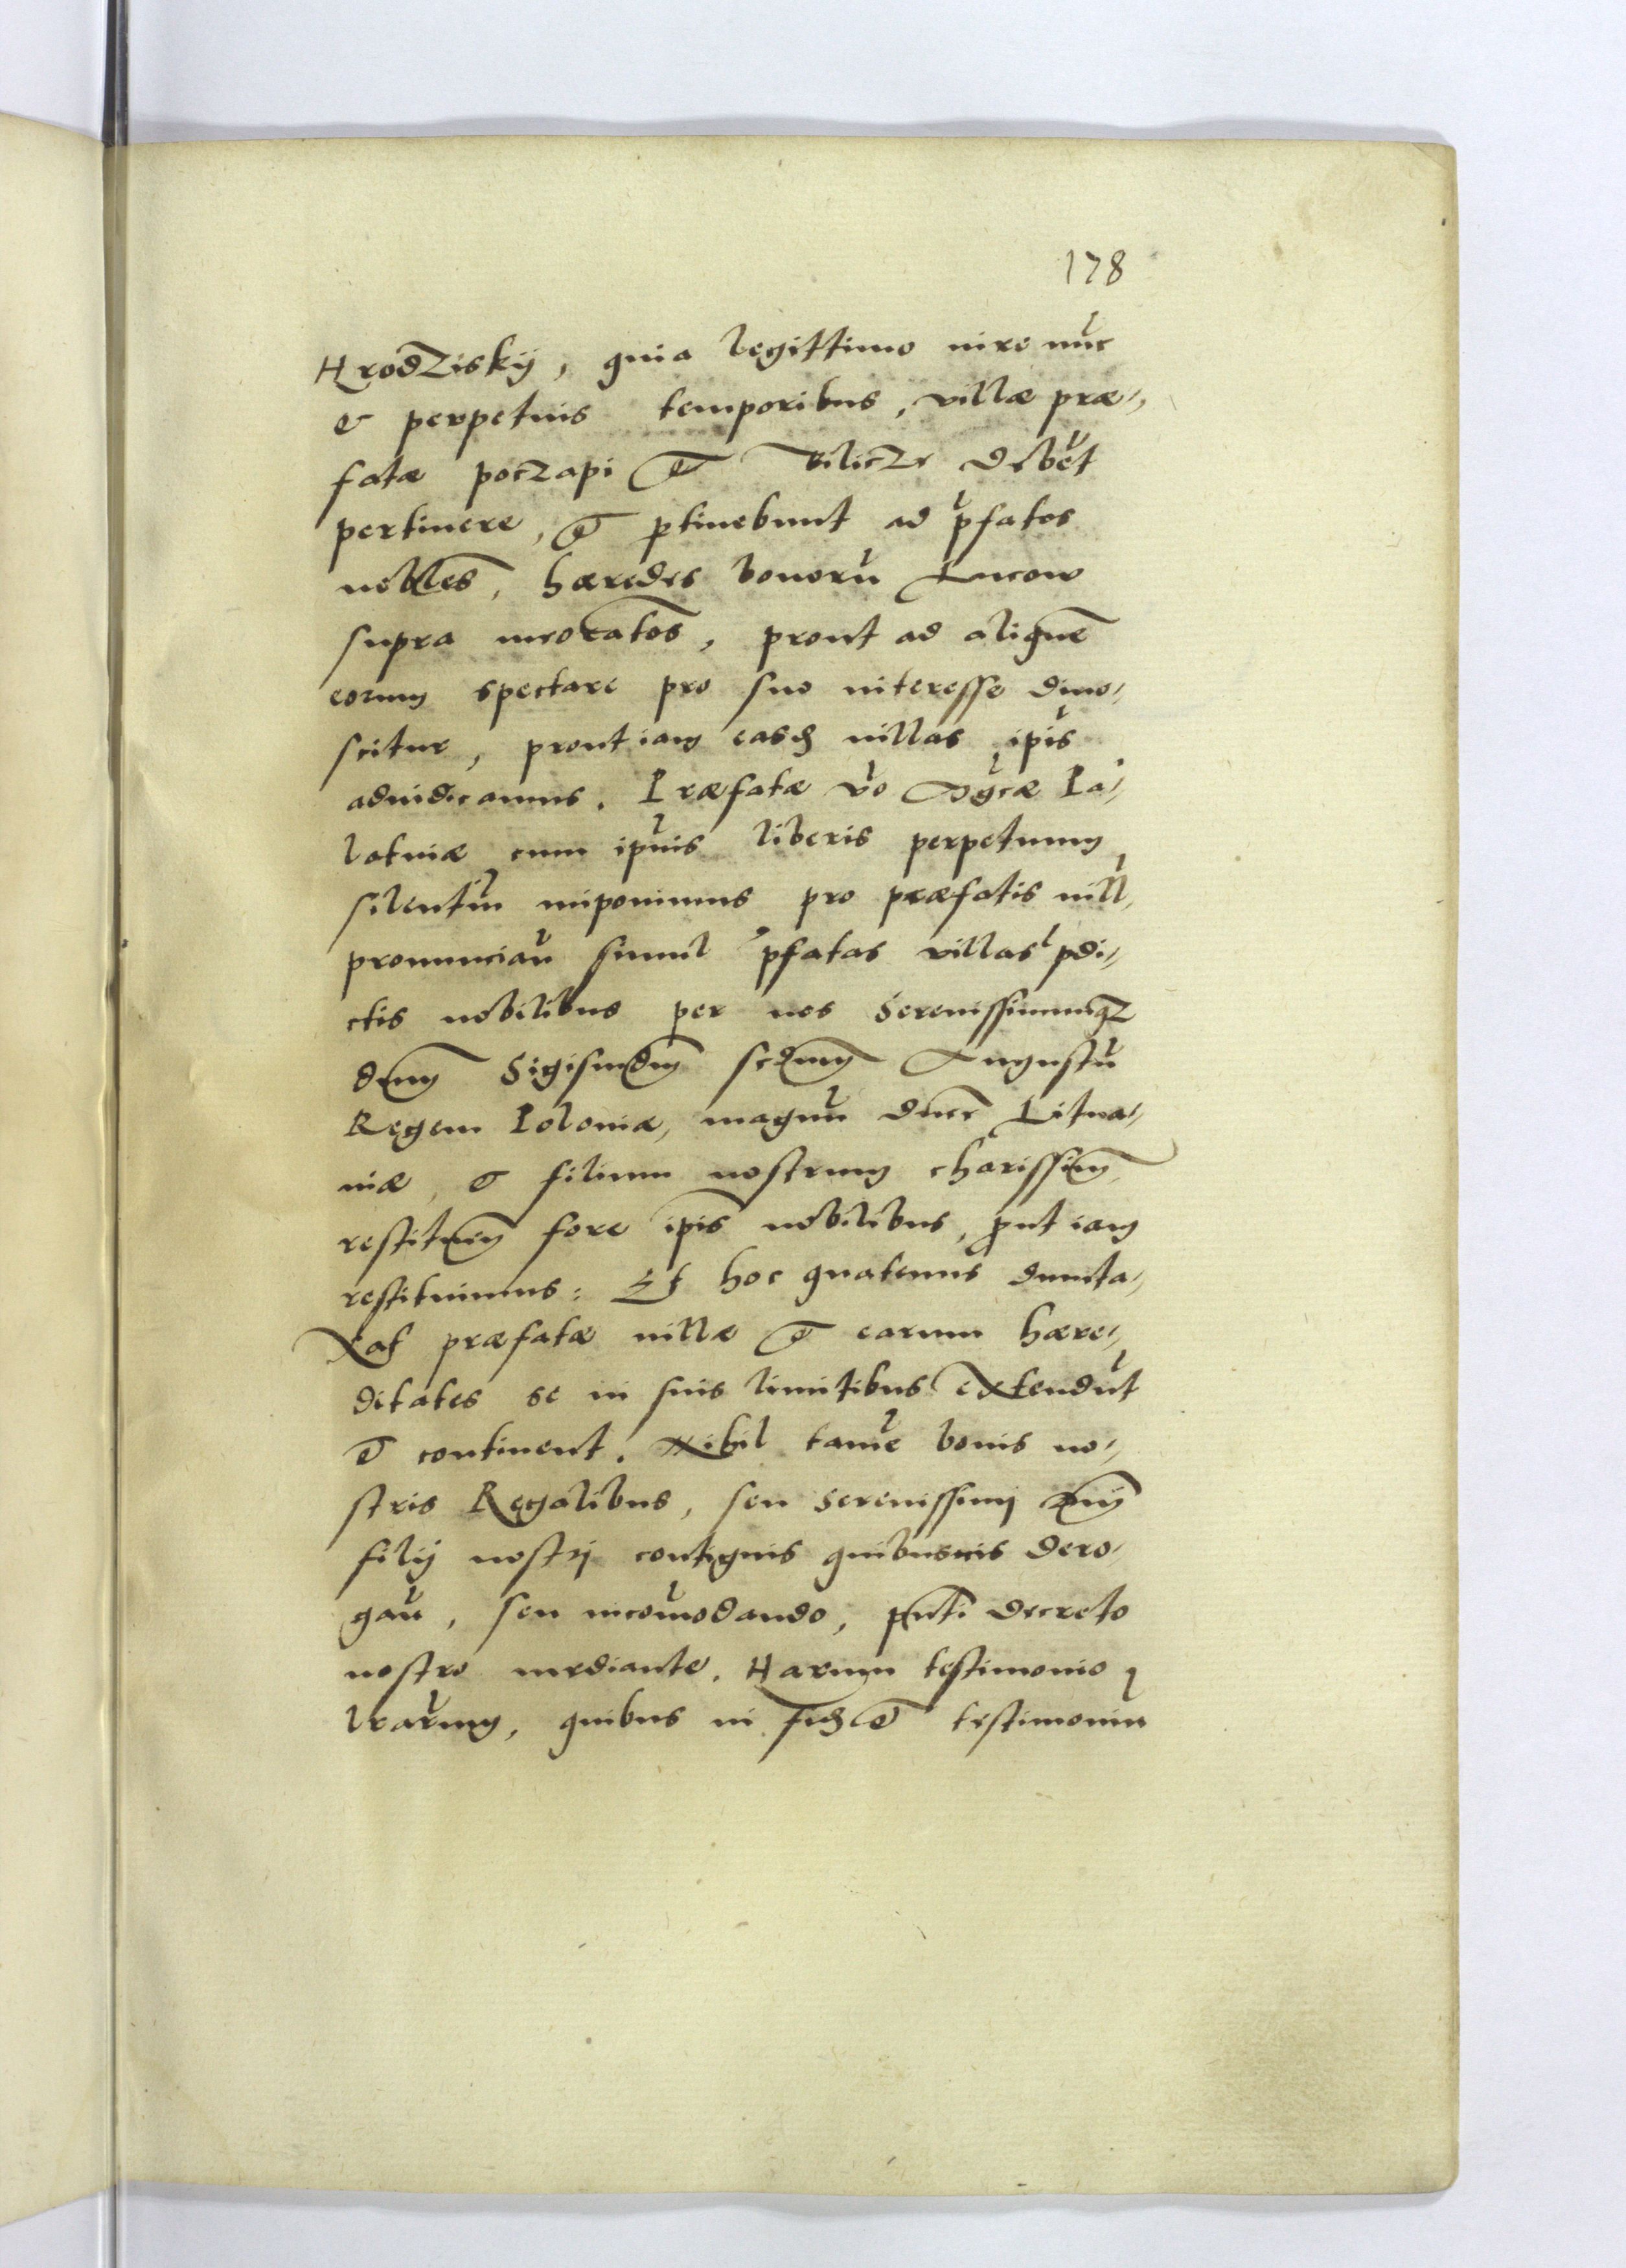 178
Hrodziskÿ, quia legittimo iure nūc
& perpetuis temporibus, villæ præ-
fatæ poczapi & Bilicze debēt
pertinere, & ꝑtinebunt ad p̄fatos
nobles, hæredes bonorū Lucow
supra meoratos, prout ad aliquē
eorum spectare pro suo interesse dino-
scitur, prout iam easd villas ip̄is
adiudicamus. Præfatæ v̄o Mḡcæ Pa-
latniæ cum ip̄iis liberis perpetuum
silentiū imponimus pro præfatis vill,
pronunciaū simul p̄fatas villas p̄di-
ctis nobilibus per nos Serenissimumqz
dnm Sigismdm scdum Augustū
Regem Poloniæ, magnū ducē Litua-
niæ, & filium nostrum charissim̄
restitum fore ip̄is nobilibus, ꝓut iam
restituimus: Et hoc quatenus dunta-
xat præfatæ villæ & earum hære-
ditates se in suis limitibus extendūt
& continent. Nihil tamē bonis no-
stris Regalibus, seu serenissimi dnij
filij nostri contiguis quibusuis dero-
gaū, seu incōmodando, pn̄ti decreto
nostro mediante. Harum testimonio
lrarum, quibus in fid & testimoniu